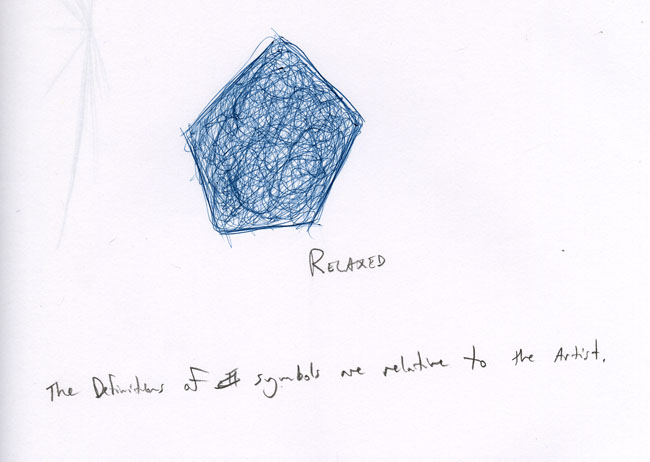 RELAXED
The Definitions of symbols are relative to the Artist.